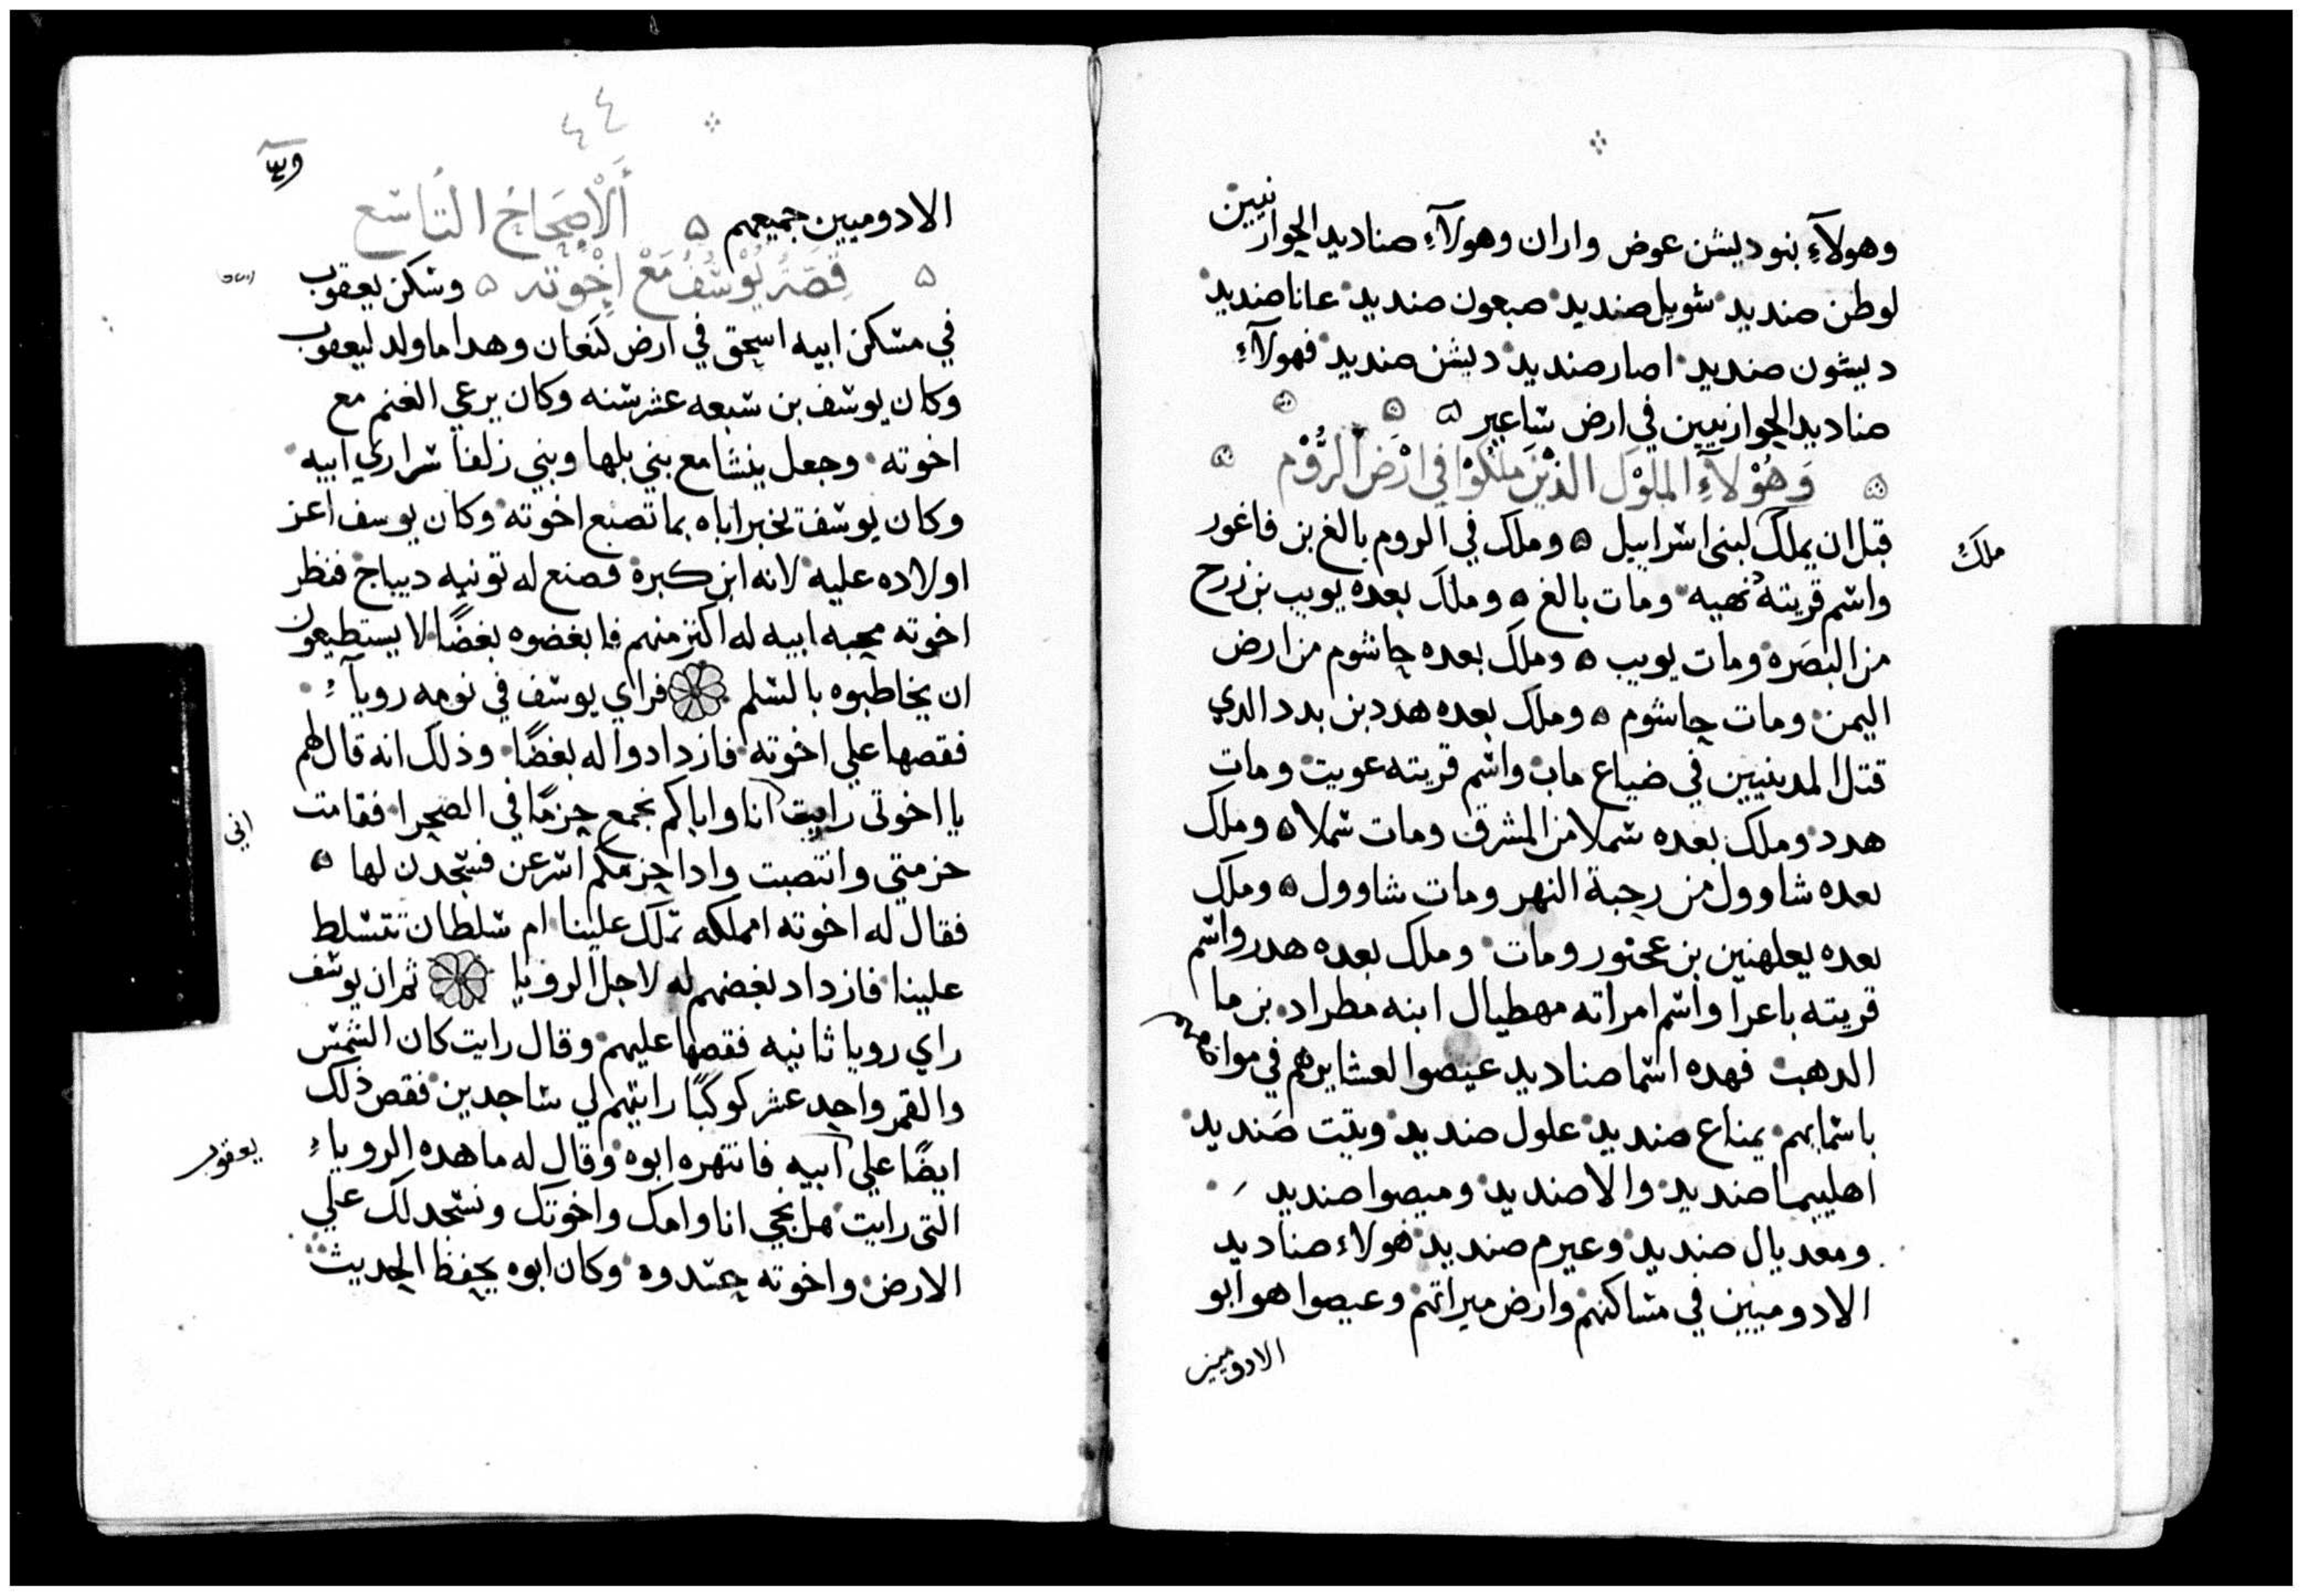 وهولآءِ بنو ديشن عوض واران وهولآءِ صناديد الحوارنيين
لوطن صنديد شوبل صنديد صبعون صنديد عانا صنديد
ديشون صنديد اصار صنديد ديشن صنديد فهولآءِ
صناديد الحوارنيين في ارض ساعير
وَهُوْلآءِ الملُوْك الذْيْنَ ملَكُوْا في ارْضَ الرُّوْم
قبل ان يملك لبنى اسراييل وملك في الروم بالغ بن فاغور
ملكٌ
واسم قريته نهيه ومات بالغ وملك بعده يوبب بن زرح
من البصَره ومات يوبب وملك بعده حاشوم من ارض
اليمن ومات حاشوم وملك بعده هدد بن بدد الدي
قتل المدينيين في ضياع ماب واسم قريته عويت ومات
هدد وملك بعده سملا من المشرق ومات سملا وملك
بعده شاوول من رحبة النهر ومات شاوول وملك
بعده يعلهنين بن عحنور ومات وملك بعده هدر واسم
قريته باعرا واسم امراته مهطيال ابنه مطراد بن ما
الدهب فهده اسما صناديد عيصوا لعشايرهم في مواضعهم
باسمايهم يمناع صنديد علول صنديد ويتت صَنديد
اهليبما صنديد والا صنديد وميصوا صنديد
ومعديال صنديد وعيرم صنديد هولاء صناديد
الادوميين في مساكنهم وارض ميراتهم وعيصوا هو ابو
الادوميين
٤٤
الادوميين جميعهم أَلْأصِحَاحُ التَّاسَع
قِصَّةُ يُوْسُفُ مَعْ اخْوْته وسكن يعقوب
في مسكن ابيه اسحق في ارض كنعان وهدا ما ولد ليعقوب
وكان يوسف بن سبعه عشر سنه وكان يرعي الغنم مع
اخوته وجعل ينشا مع بني بلها وبني زلفا سراري ابيه
وكان يوسف يخبر اباه بما تصنع اخوته وكان يوسف اعز
اولاده عليه لانه ابن كبرة فصنع له تونيه ديباج فنظر
اخوته محبه ابيه له اكتر منهم فابغضوه بغضًا لا يستطيعون
ان يخاطبوه بالسلم فراي يوسف في نومه رويآء
فقصها علي اخوته فازدادوا له بغضًا وذلك انه قال لهم
يا اخوتى رايت انا واياكم نجمع حزمًا في الصحرا فقامت
اني
حزمتي وانتصبت وادا حزمكم اسرعن فسجدن لها
فقال له اخوته امملكه تملك علينا ام سلطان تتسلط
علينا فازداد بغضهم له لاجل الرويا ثم ان يوسف
راي رويا ثانيه فقصها عليهم وقال رايت كان الشمس
والقمر واحد عشر كوكبًا رايتهم لي ساجدين فقص ذلك
ايضًا علي ابيه فانتهره ابوه وقال له ما هده الروياء
يعقوب
التى رايت هل نجي انا وامك واخوتك ونسجد لك علي
الارض واخوته حسدوه وكان ابوه يحفظ الحديث